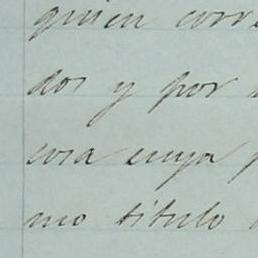 quien corre
dos y por
cosa cuya p
mo titulo